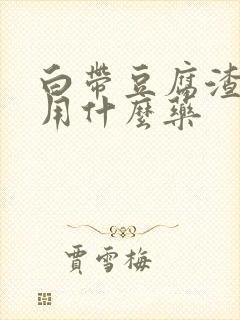 白帶豆腐渣
用什麼藥
賈雪梅